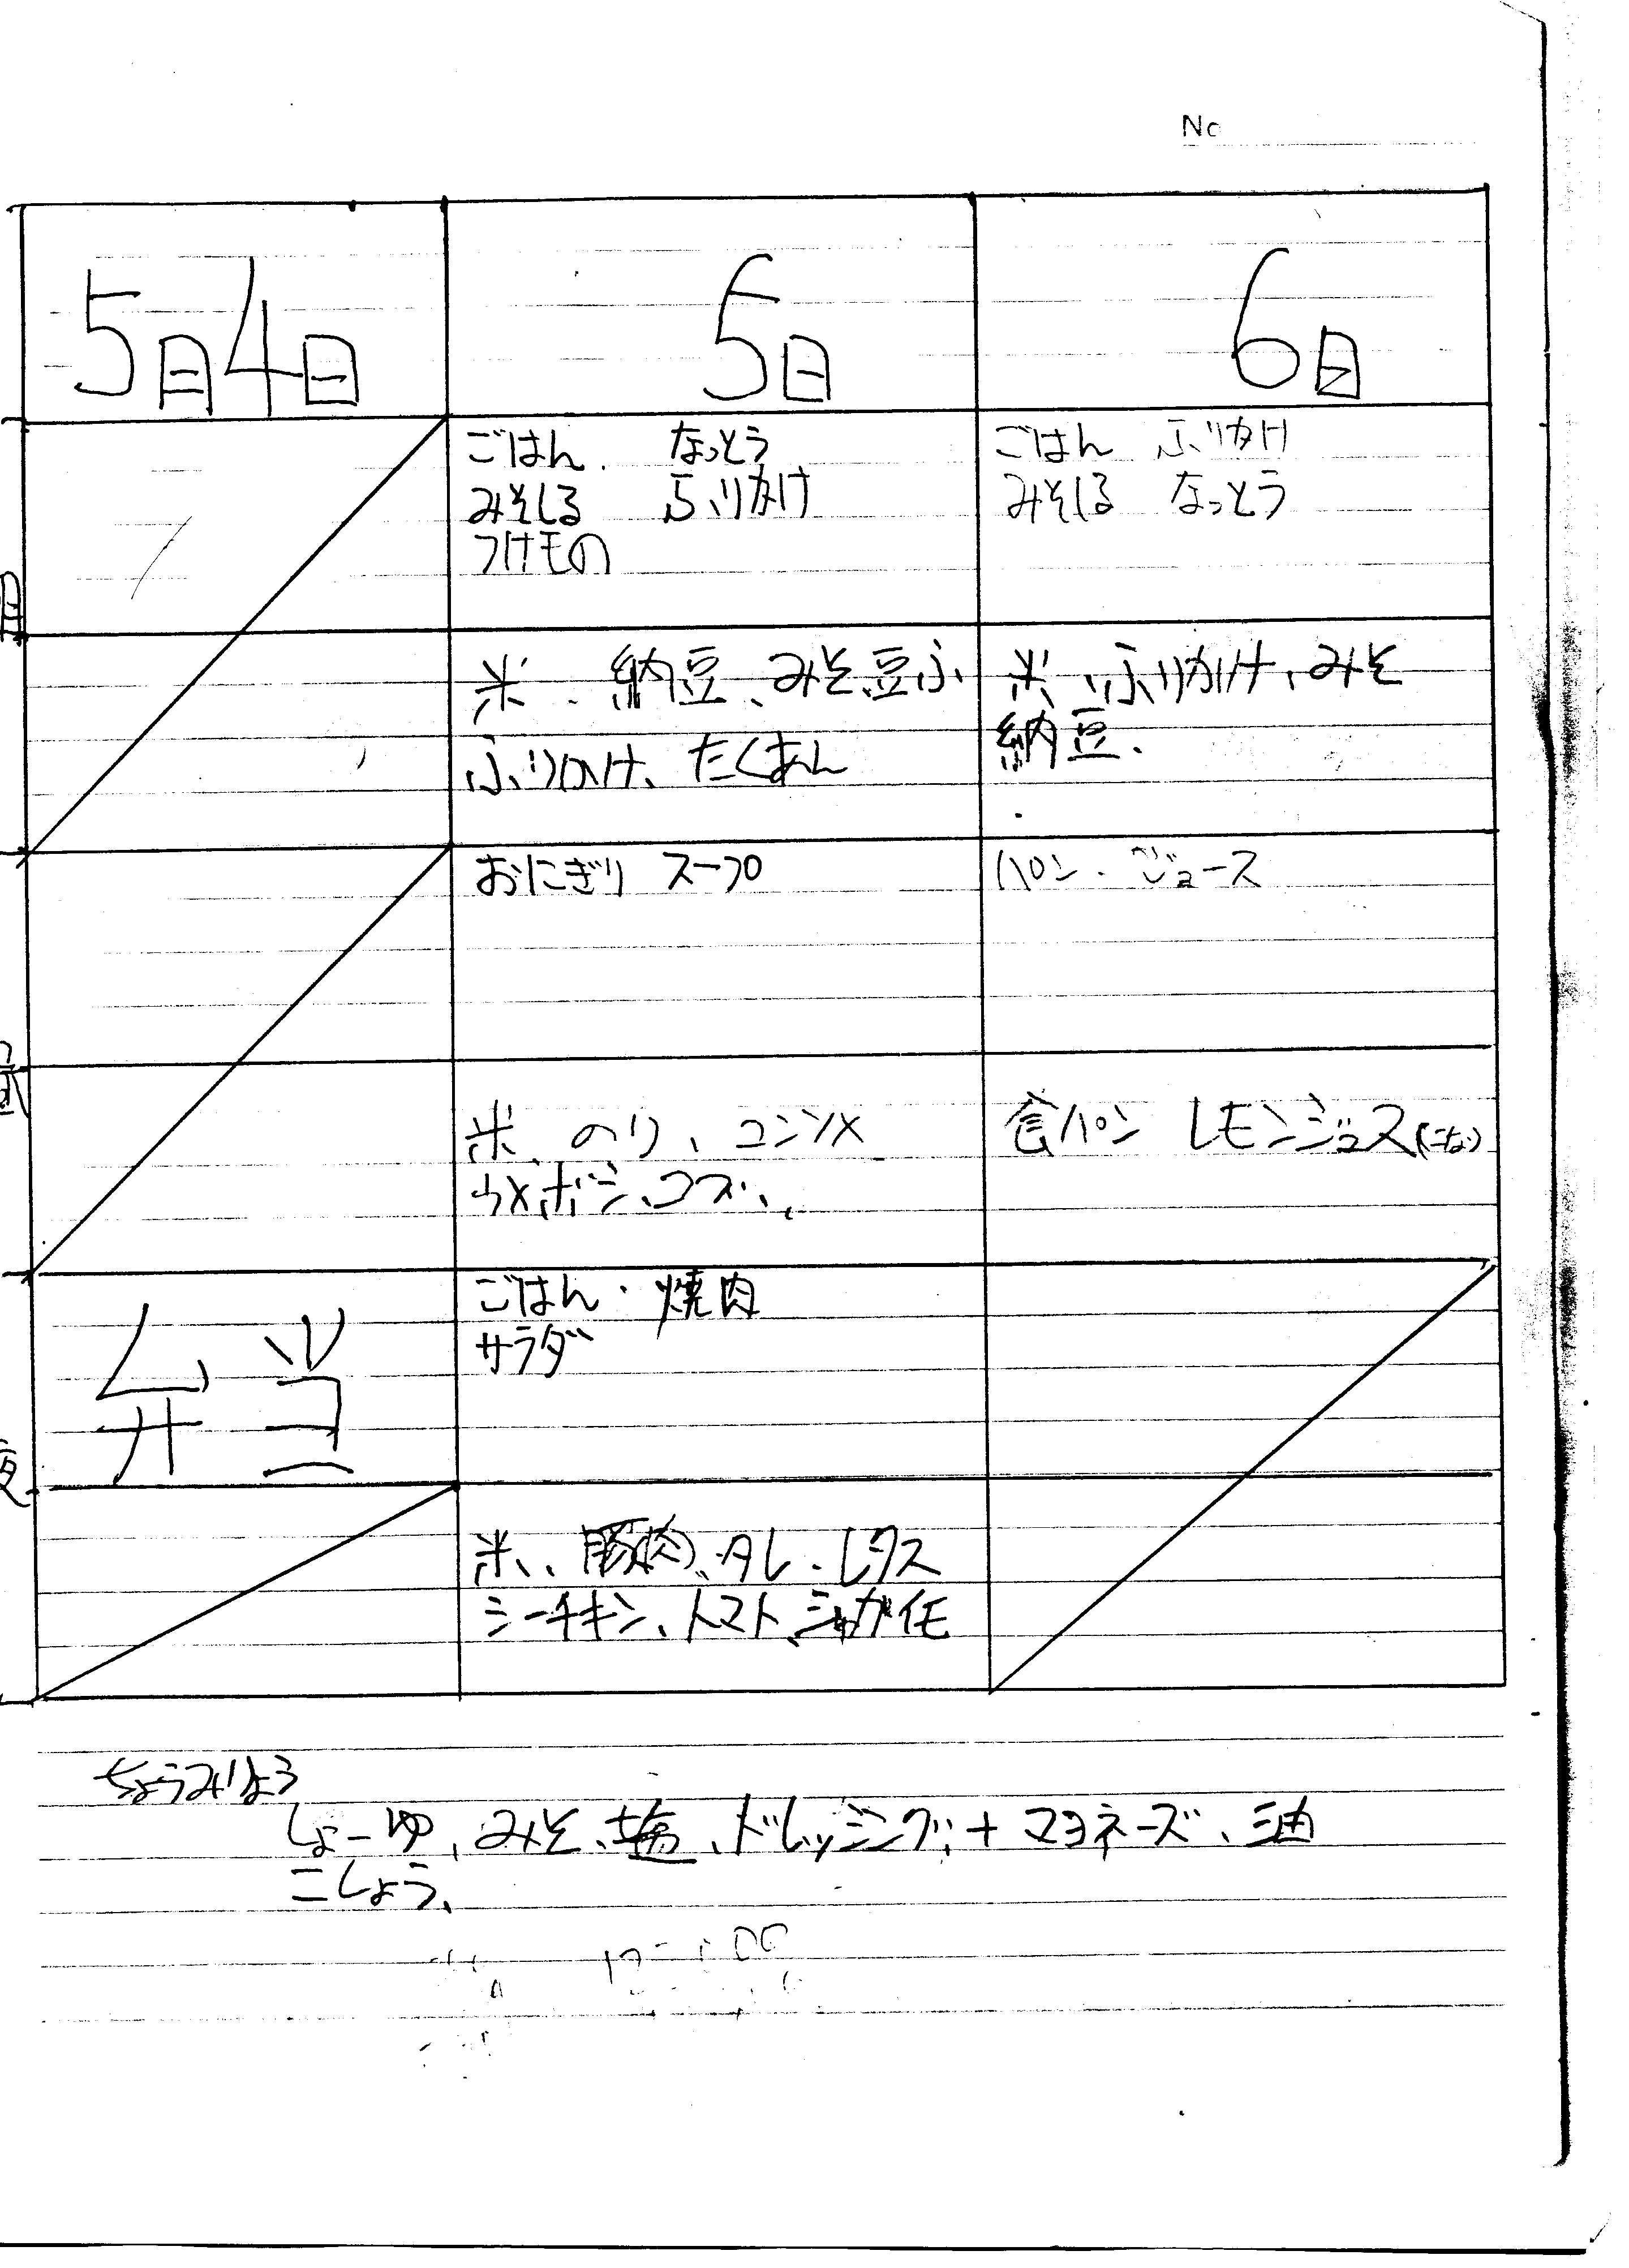 No
5月4日
5日
6日
ごはん なっとう
みそしる ふりかけ
つけもの
ごはん ふりかけ
みそしる なっとう
米、納豆、みそ、豆ふ
ふりかけ、たくあん
米、ふりかけ、みそ
納豆、
おにぎり スープ
パン・ジュース
米、のり、コンソメ
ウメボシ、コブ、
食パン レモンジュース(こな)
弁当
ごはん・焼肉
サラダ
米、豚肉、タレ、レタス
シーチキン、トマト、ジャガイモ
夜
ちょうみりょう
しょーゆ、みそ、塩、ドレッシング、+マヨネーズ、油
こしょう、